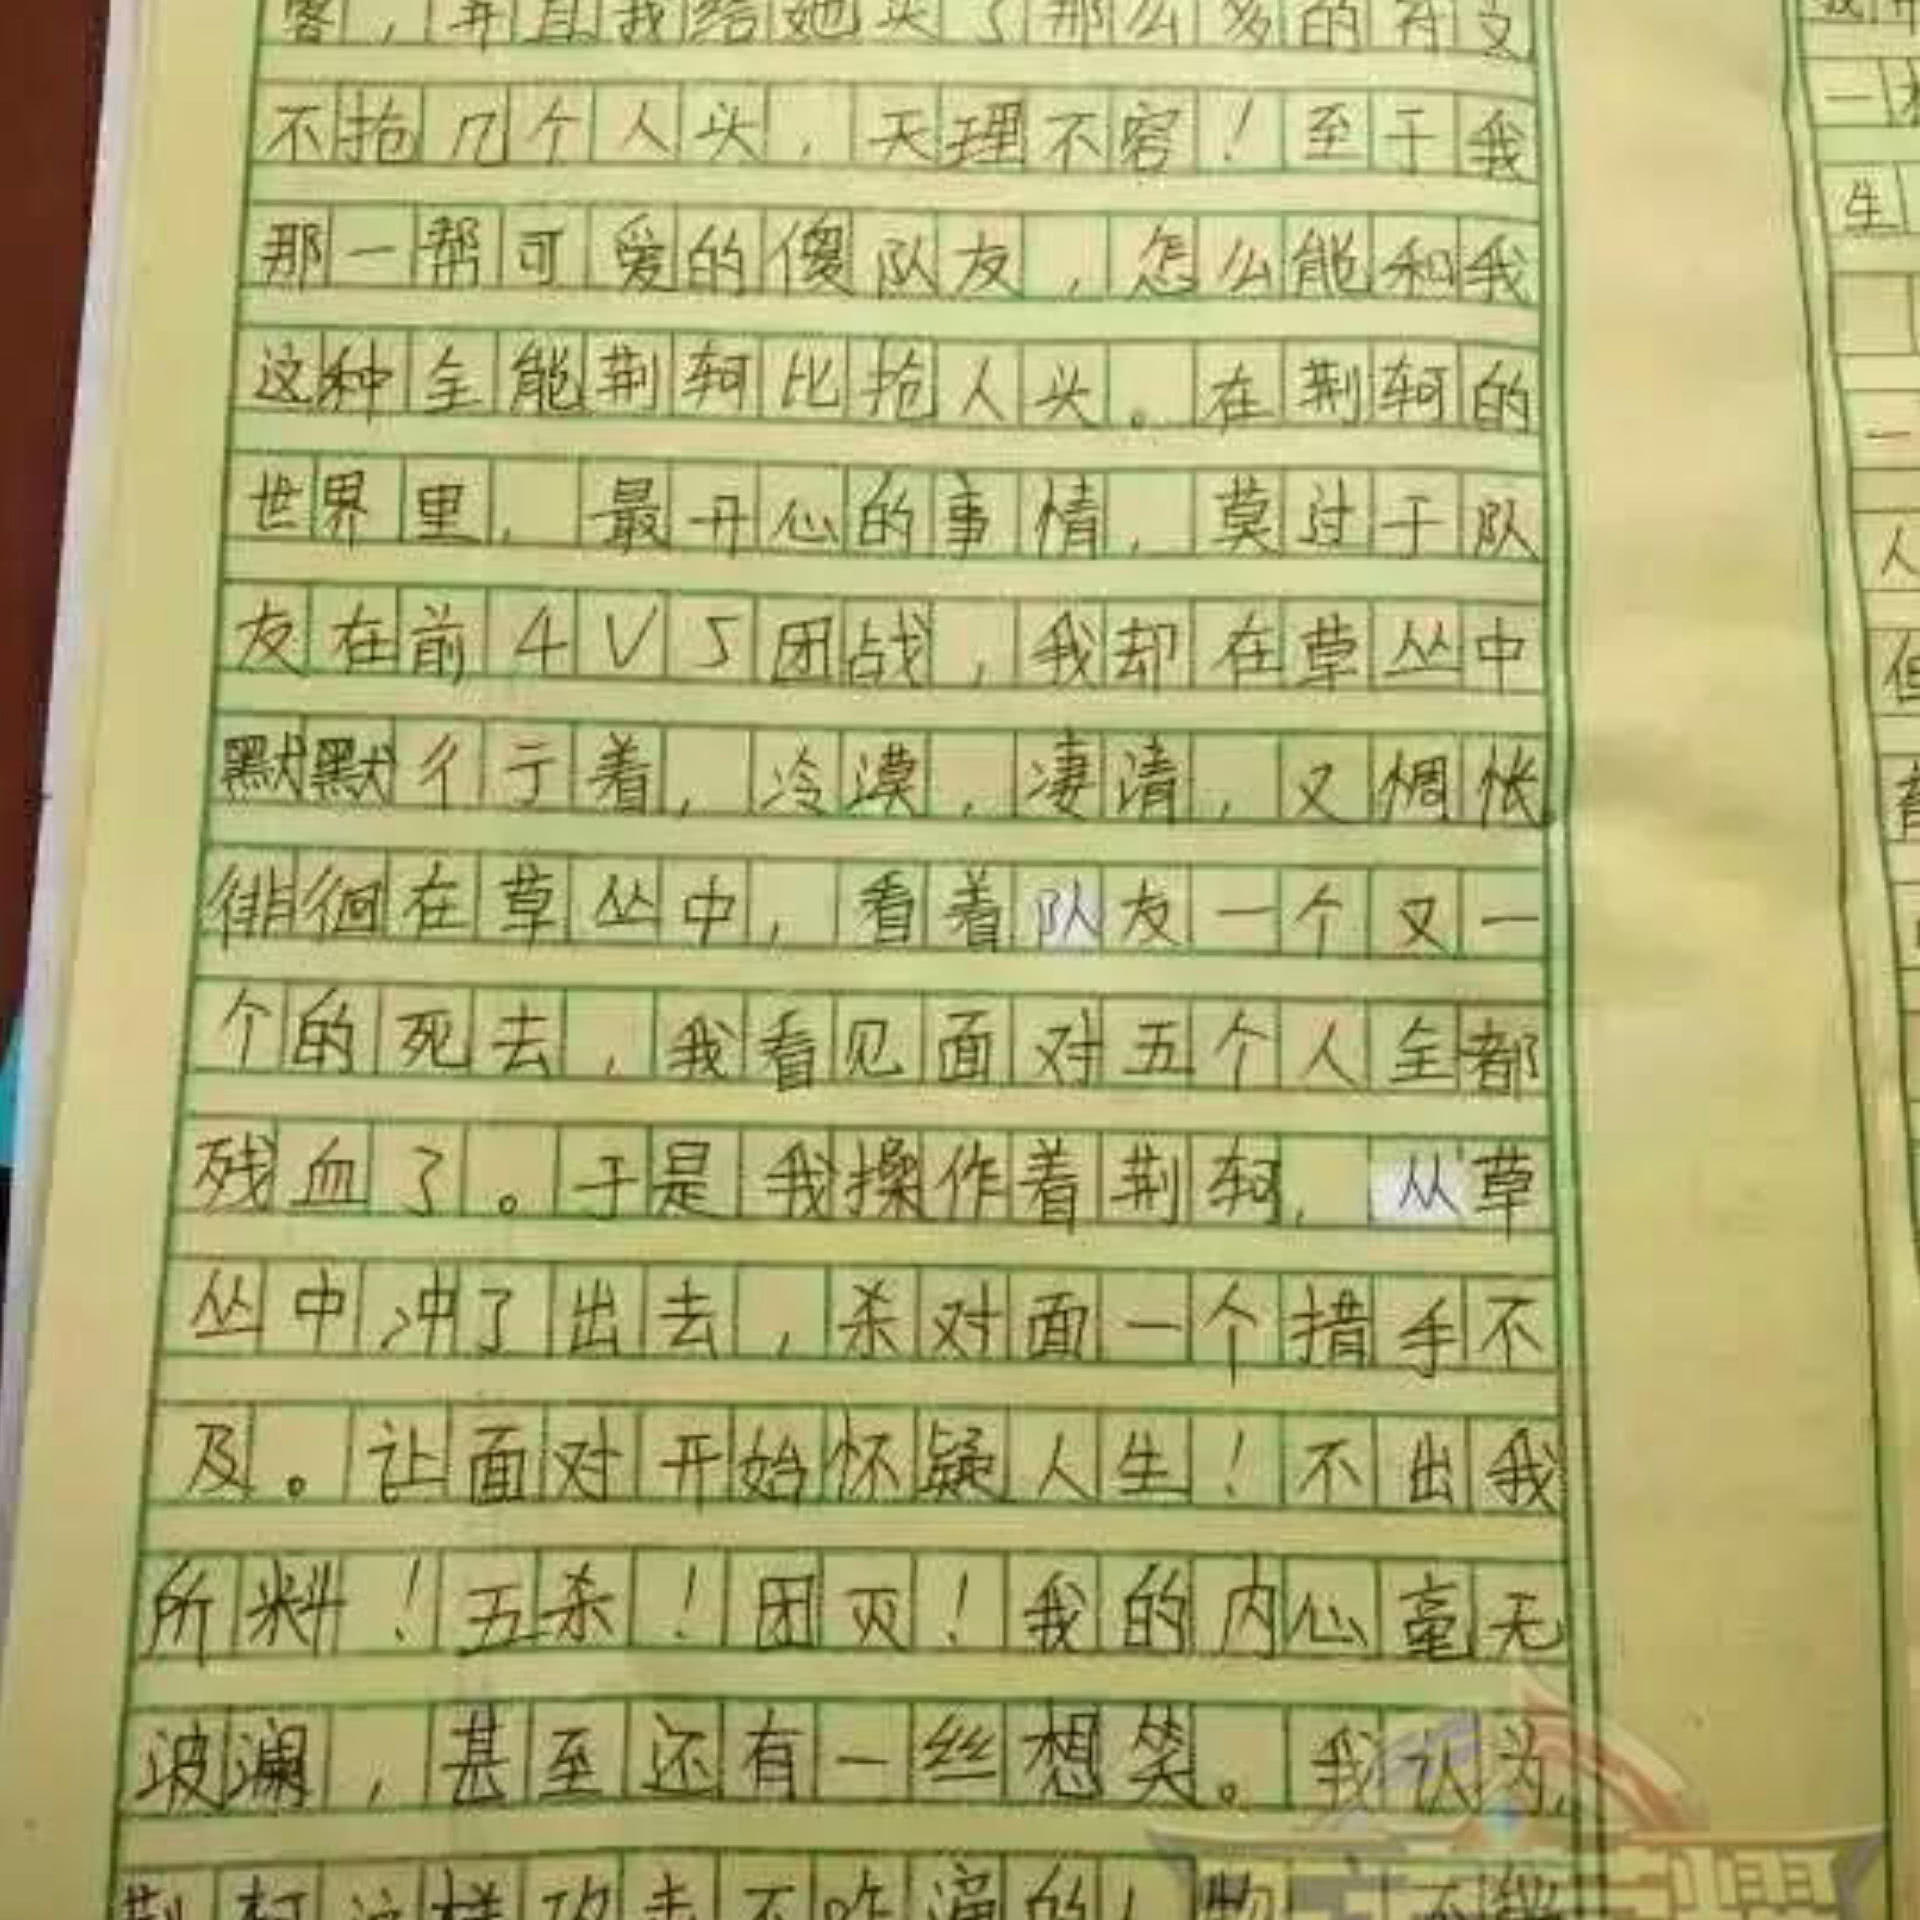 客,并且我给她买了那么多的符文
不抢几个人头,天理不容!至于我
那一帮可爱的傻队友,怎么能和我
这种全能荆轲比抢人头。在荆轲的
世界里,最开心的事情,莫过于队
友在前4V5团战,我却在草丛中
默默彳亍着,冷漠,凄清,又惆怅,
徘徊在草丛中,看着队友一个又一
个的死去,我看见面对五个人全都
残血了。于是我操作着荆轲,从草
丛中冲了出去,杀对面一个措手不
及。让面对开始怀疑人生!不出我
所料!五杀!团灭!我的内心毫无
波澜,甚至还有一丝想笑。我认为,
荆轲这样攻击不
一
生
一
人
但